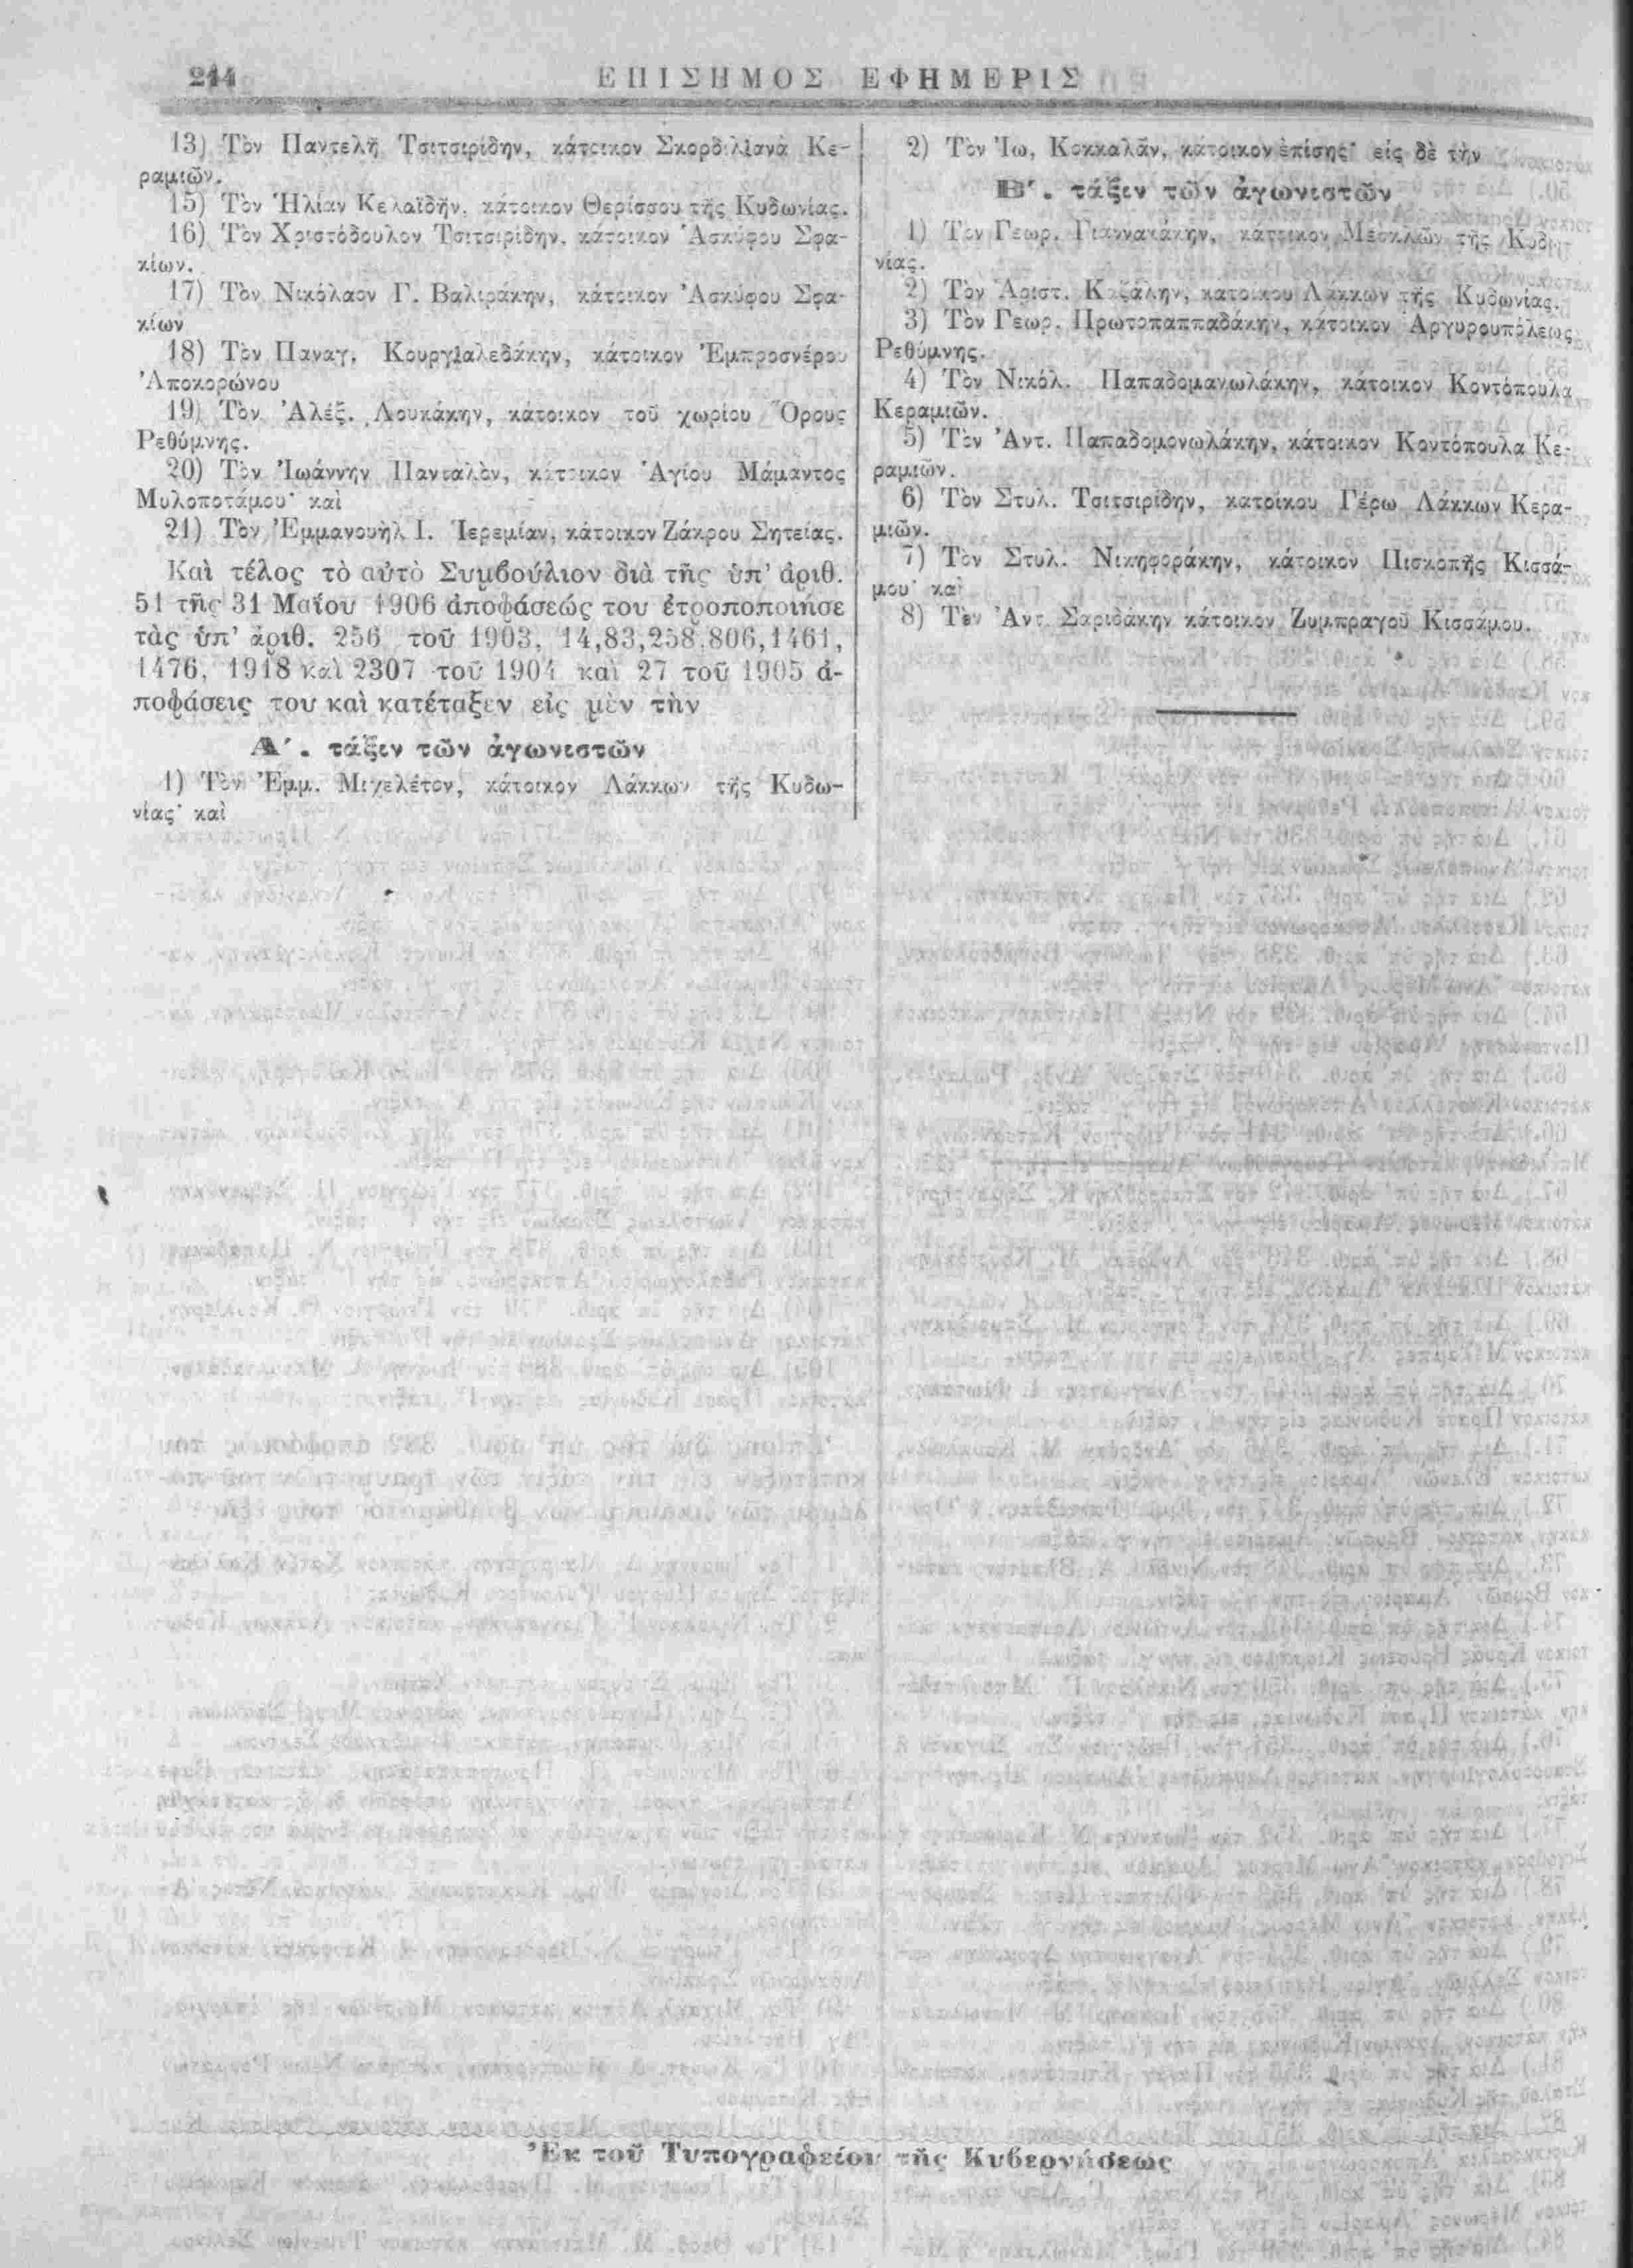 244
ΕΠΙΣΗΜΟΣ ΕΦΗΜΕΡΙΣ
13) Τὸν Παντελῆ Τσιτσιρίδην, κάτοικον Σκορδιλιανὰ Κε-
ραμιῶν.
15) Τὸν Ἠλίαν Κελαϊδῆν, κάτοικον Θερίσσου τῆς Κυδωνίας.
16) Τὸν Χριστόδουλον Τσιτσιρίδην, κάτοικον Ἀσκύφου Σφα-
κίων.
17) Τὸν Νικόλαον Γ. Βαλιράκην, κάτοικον Ἀσκύφου Σφα-
κίων
18) Τὸν Παναγ. Κουργιαλεδάκην, κάτοικον Ἐμπροσνέρου
Ἀποκορώνου
19) Τὸν Ἀλέξ. Λουκάκην, κάτοικον τοῦ χωρίου Ὄρους
Ρεθύμνης.
20) Τὸν Ἰωάννην Πανταλὸν, κάτοικον Ἁγίου Μάμαντος
Μυλοποτάμου· καὶ
21) Τὸν Ἐμμανουὴλ Ι. Ἱερεμίαν, κάτοικον Ζάκρου Σητείας.
Καὶ τέλος τὸ αὐτὸ Συμβούλιον διὰ τῆς ὑπ' ἀριθ.
51 τῆς 31 Μαΐου 1906 ἀποφάσεώς του ἐτροποποιήσε
τὰς ὑπ' ἀριθ. 256 τοῦ 1903, 14,83,258,806,1461,
1476, 1918 καὶ 2307 τοῦ 1904 καὶ 27 τοῦ 1905 ἀ-
ποφάσεις του καὶ κατέταξεν εἰς μὲν τὴν
Α΄. τάξιν τῶν ἀγωνιστῶν
1) Τὸν Ἐμμ. Μιχελέτον, κάτοικον Λάκκων τῆς Κυδω-
νίας· καὶ
2) Τὸν Ἰω, Κοκκαλᾶν, κάτοικον ἐπίσης· εἰς δὲ τὴν
Β΄. τάξιν τῶν ἀγωνιστῶν
1) Τὸν Γεωρ. Γιαννακάκην, κάτοικον Μεσκλῶν τῆς Κυδω
νίας.
2) Τὸν Ἀριστ. Καζάλην, κατοίκου Λάκκων τῆς Κυδωνίας.
3) Τὸν Γεωρ. Πρωτοπαππαδάκην, κάτοικον Ἀργυρουπόλεως
Ρεθύμνης.
4) Τὸν Νικόλ. Παπαδομανωλάκην, κάτοικον Κοντόπουλα
Κεραμιῶν.
5) Τὸν Ἀντ. Παπαδομονωλάκην, κάτοικον Κοντόπουλα Κε-
ραμιῶν.
6) Τὸν Στυλ. Τσιτσιρίδην, κατοίκου Γέρω Λάκκων Κερα-
μιῶν.
7) Τὸν Στυλ. Νικηφοράκην, κάτοικον Πισκοπῆς Κισσά-
μου· καὶ
8) Τὸν Ἀντ. Σαριδάκην κάτοικον Ζυμπραγοῦ Κισσάμου.
Ἐκ τοῦ Τυπογραφείου τῆς Κυβερνήσεως